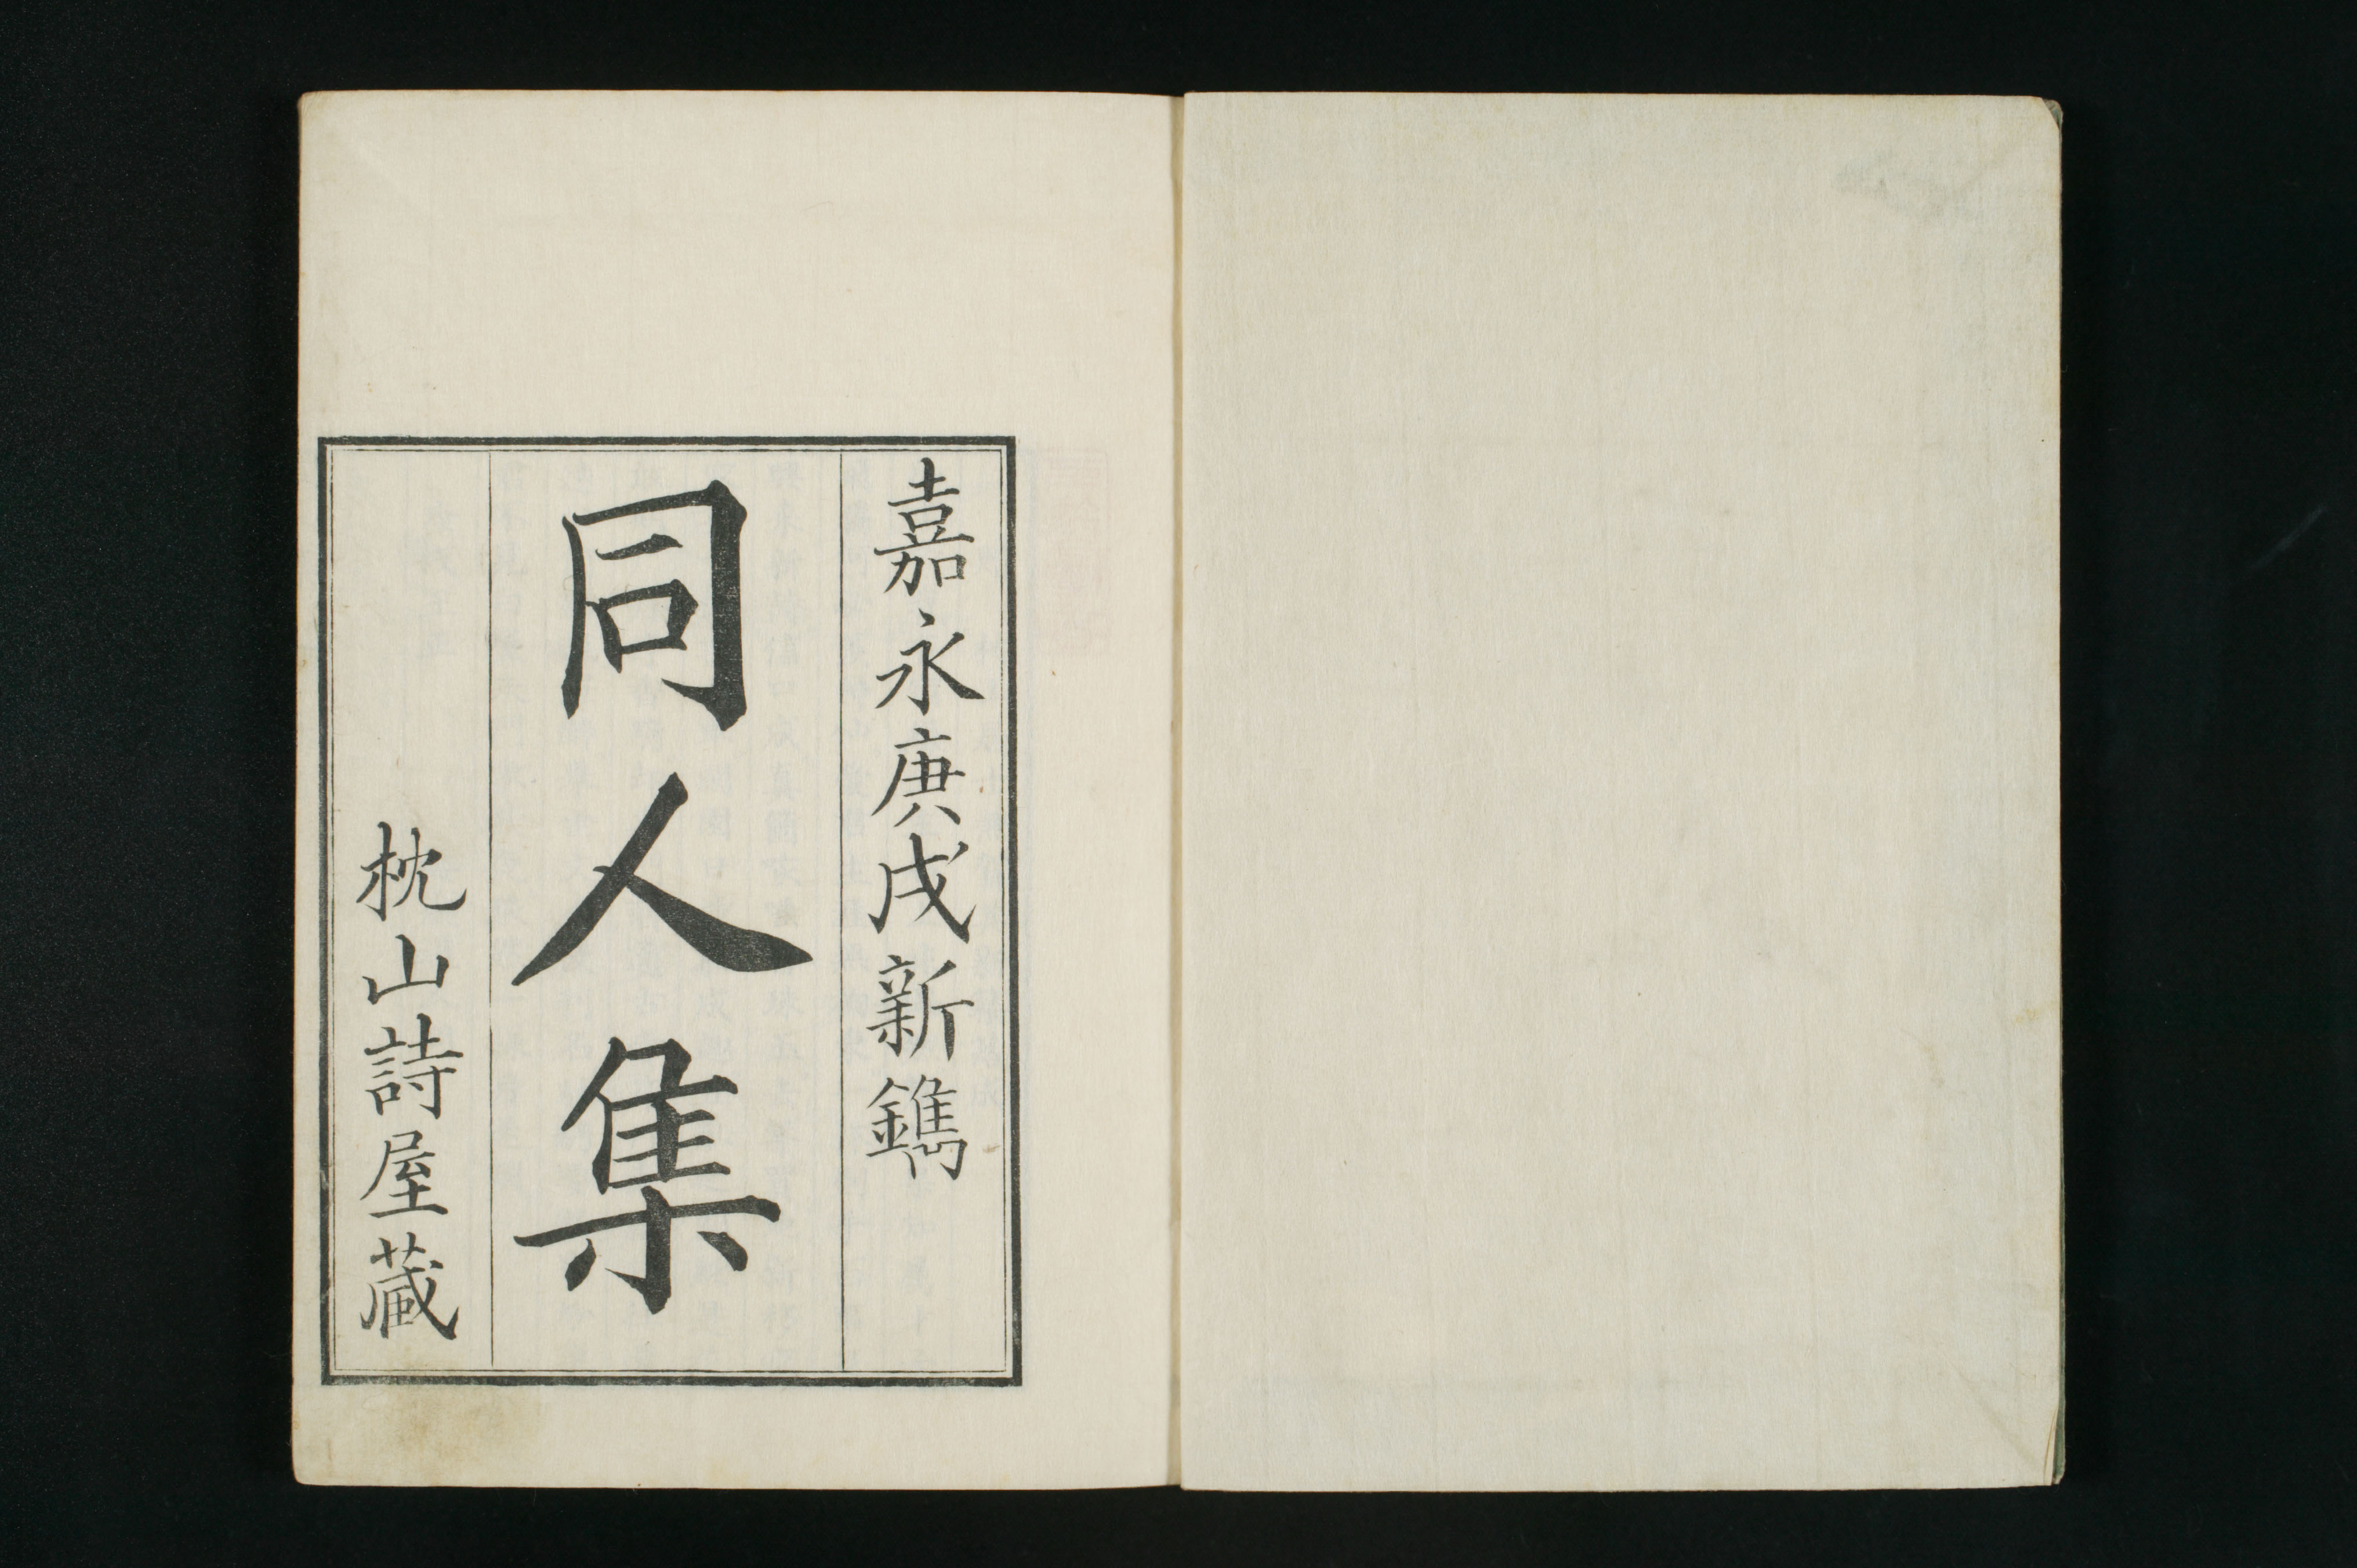 嘉永庚戌新鐫
同人集
枕山詩屋蔵